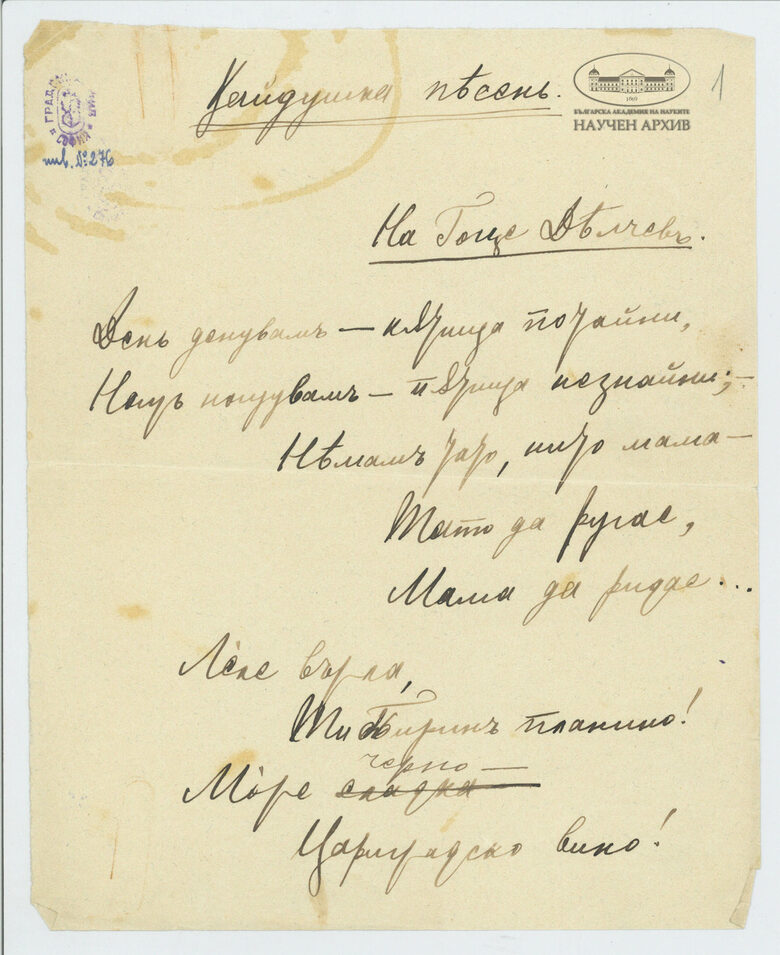 Хайдушка пѣсень.
1869
БЪЛГАРСКА АКАДЕМИЯ НА НАУКИТЕ
НАУЧЕН АРХИВ
1
СОФИЯ
инв. № 276
На Гоце Дѣлчевъ.
День денувамъ — кѫтища потайни,
Нощь нощувамъ — пѫтища незнайни;—
Нѣмамъ тато, нито мама—
Тато да ругае,
Мама да ридае...
Лѐле върла,
Ти Пиринъ планино!
черно—
Мо̀ре сладка
Цариградско вино!